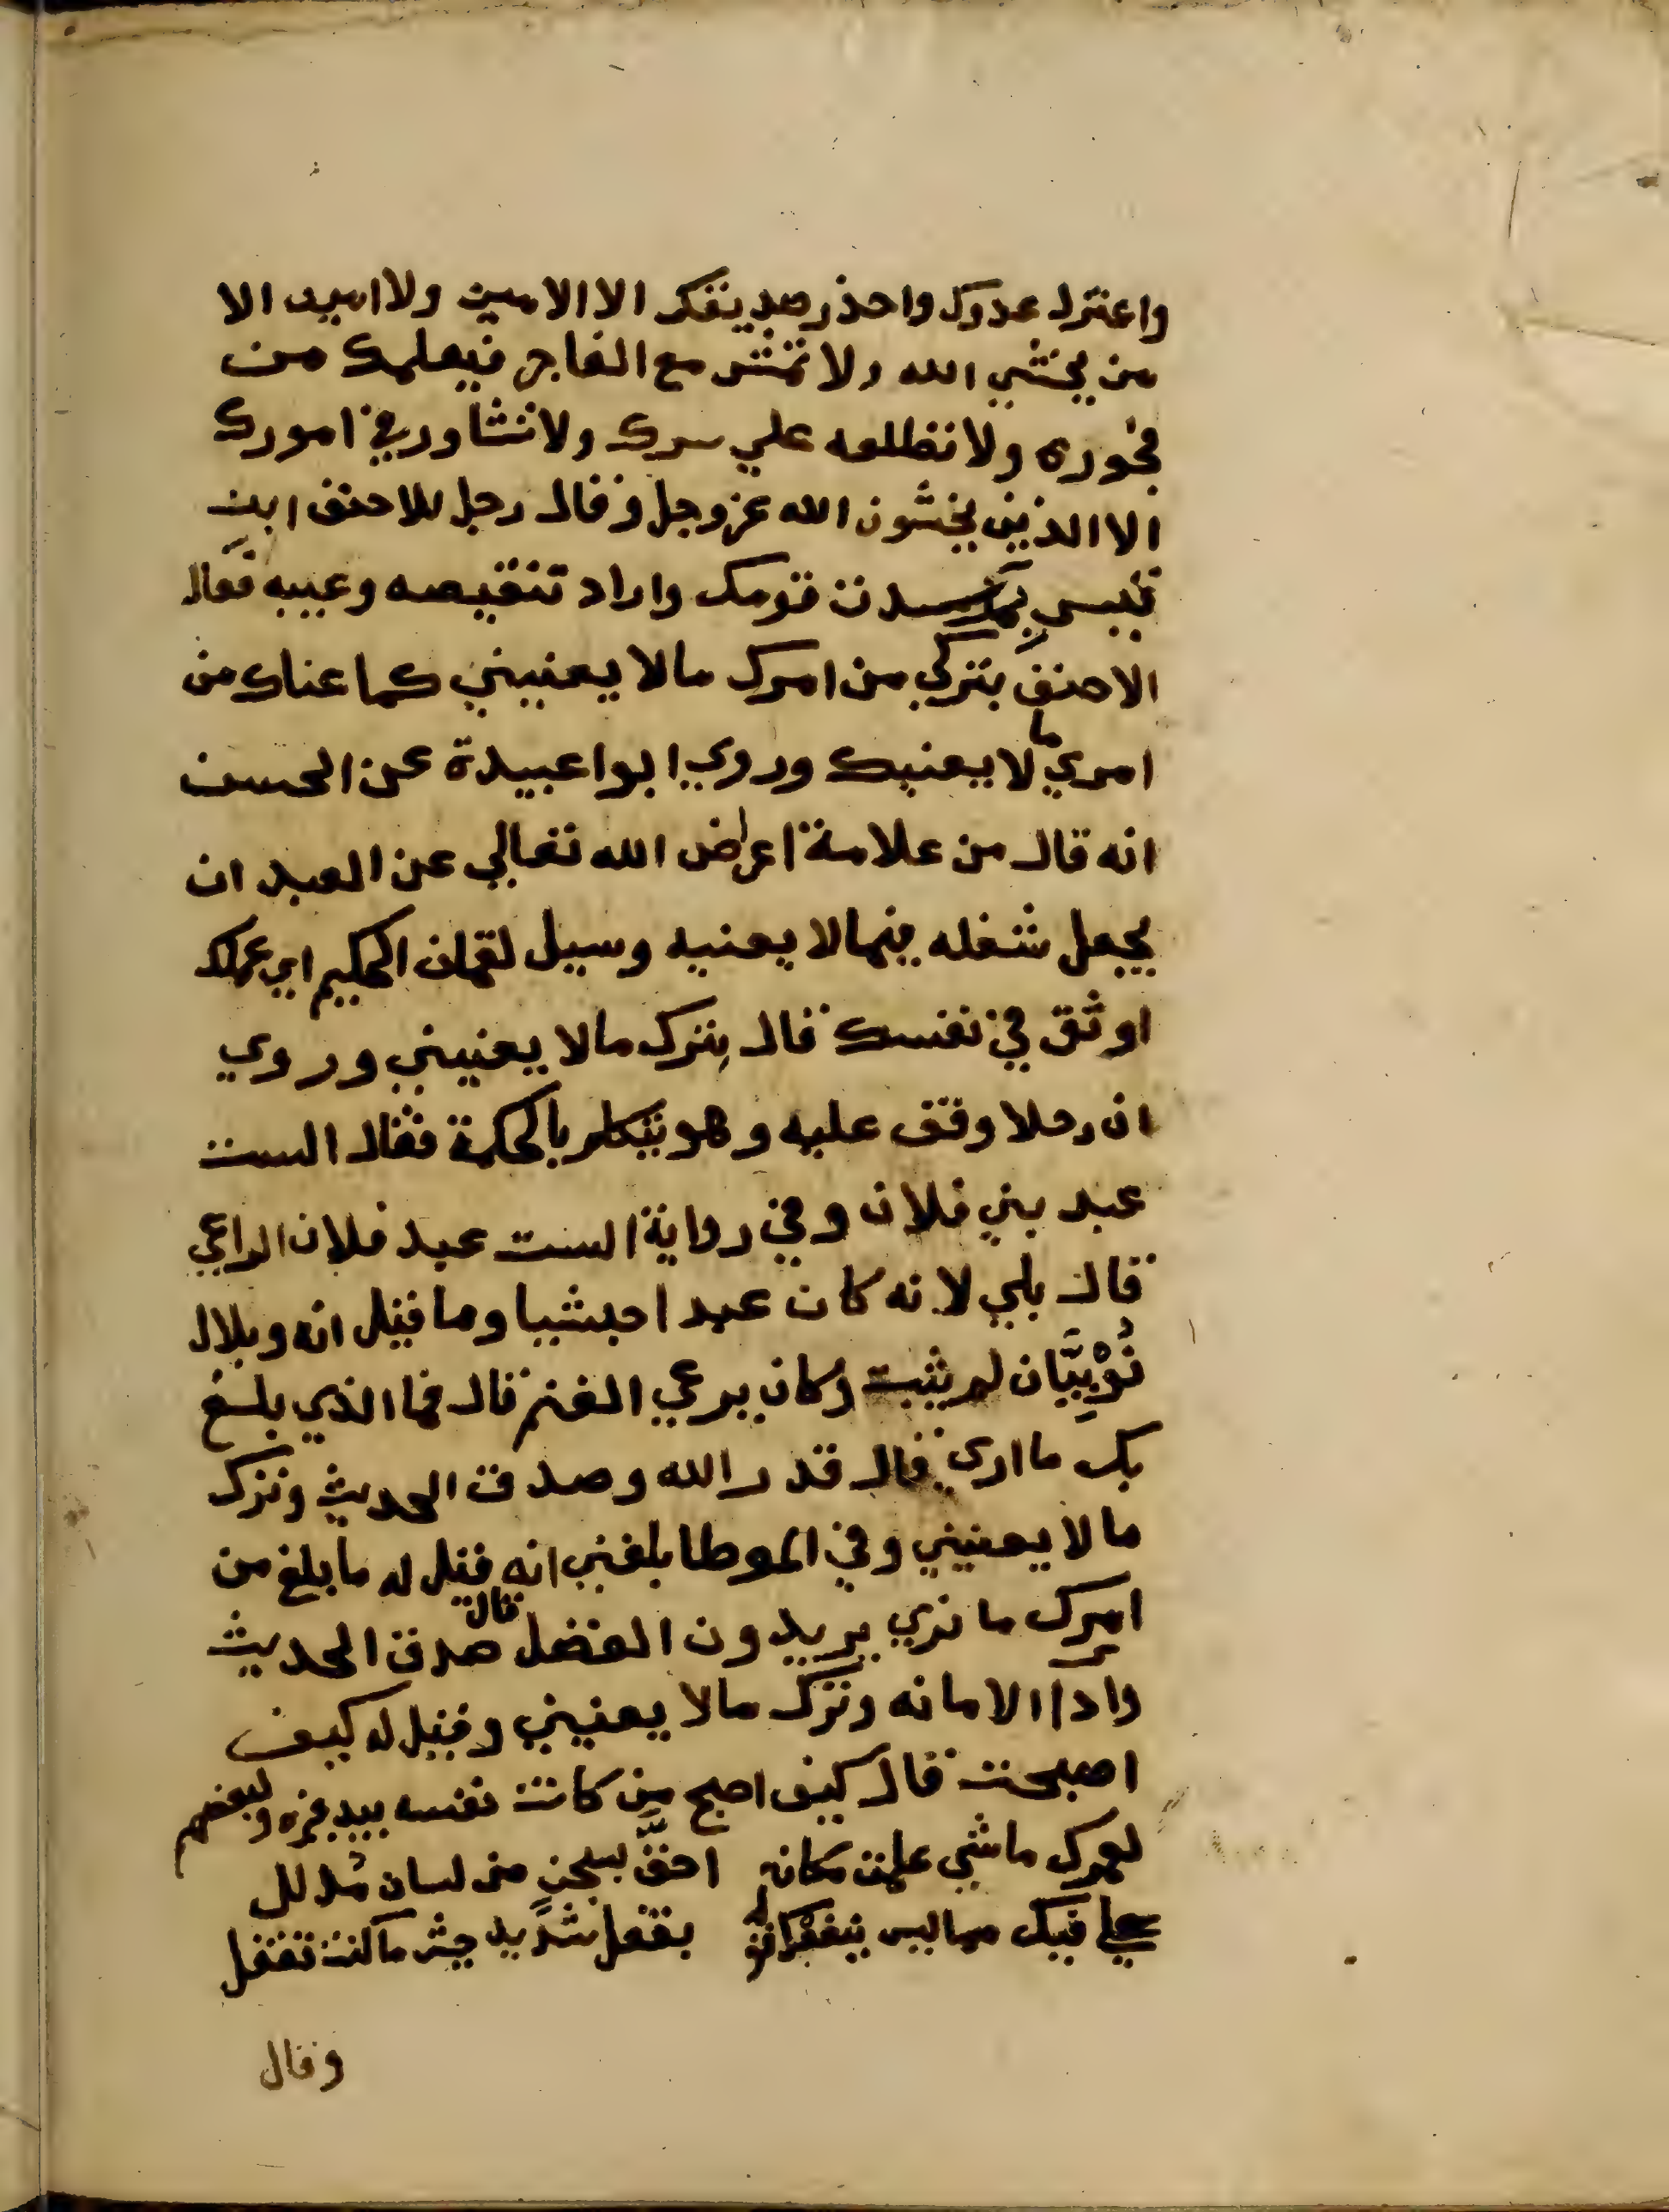 واعتزل عدوك واحذر صديقك الا الامين ولا امين الا
من يخشي الله ولا تمش مع الفاجر فيعلمك من
فجوره ولا تطلعه علي سرك ولا تشاور في امورك
الا الذين يخشون الله عز وجل وقال رجل للاحنف ابن
قيس بم سدت قومك واراد تنقيصه وعيبه فقال
الاحنف بتركي من امرك مالا يعنيني كما عناك من
امري ما لا يعنيك وروي ابوا عبيدة عن الحسن
انه قال من علامة اعراض الله تعالي عن العبد ان
يجعل شغله فيما لا يعنيه وسيل لقمان الحكيم اي عملك
اوثق في نفسك قال بترك مالا يعنيني وروي
ان رجلا وقف عليه وهو يتكلم بالحكمة فقال الست
عبد بني فلان وفي رواية الست عبد فلان الراعي
قال بلي لانه كان عبدا حبشيا وما قيل انه وبلال
نُوْبِيَّان لم يثبت وكان يرعي الغنم قال فما الذي بلغ
بك ما اري قال قدر الله وصدق الحديث وترك
مالا يعنيني وفي الموطا بلغني انه قيل له ما بلغ من
امرك ما نري يريدون الفضل قال صدق الحديث
وادا الامانه وترك مالا يعنيني وقيل له كيف
اصبحت قال كيف اصبح من كانت نفسه بيد غيره ولبعضهم
لعمرك ما شي علمت مكانه احقَّ بسجنٍ من لسان مُذلل
علي فيك مما ليس يعنيك قوله بقفل شديد حيث ما كنت تقفل
وقال